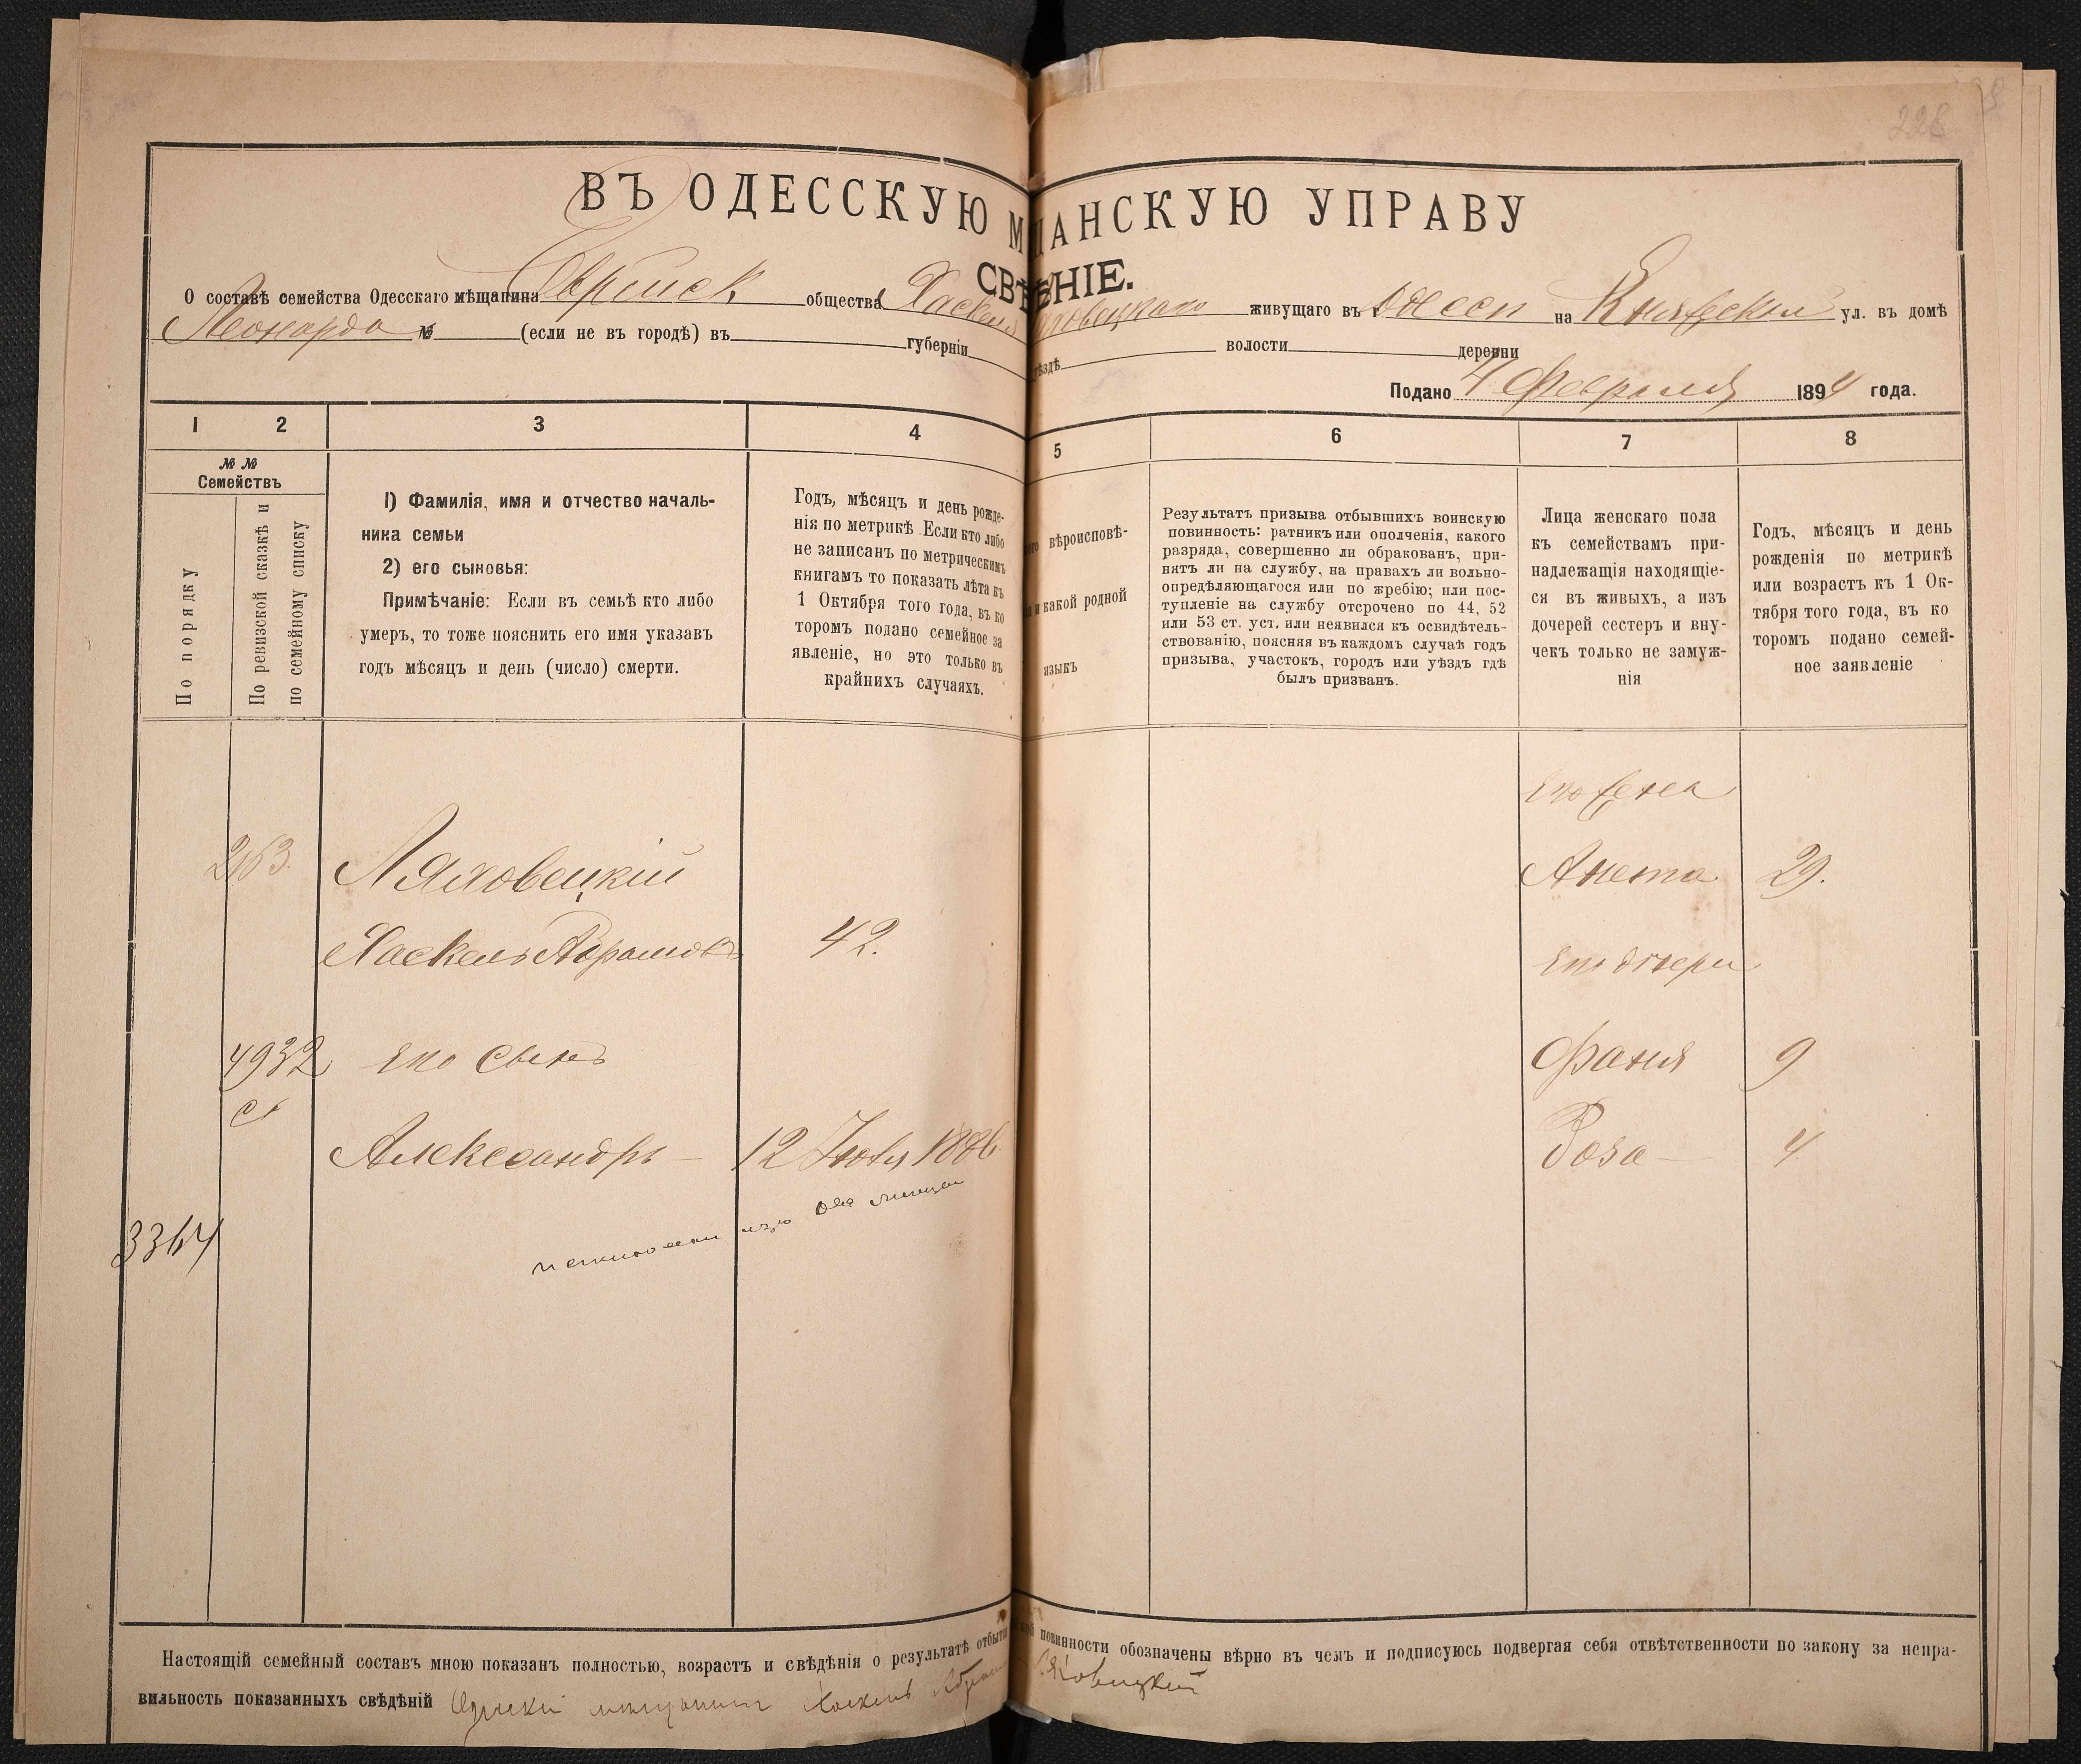 228
ВЪ ОДЕССКУЮ М ЩАНСКУЮ УПРАВУ
СВѢ ЕНІЕ.
О составѣ семейства Одесскаго мѣщанина Еврейск общества Хаскеля Ляховецкаго живущаго въ г Одессѣ на Княжеской ул. въ домѣ
Леонарда № (если не въ городѣ) въ губерніи уѣздѣ волости деревни
Подано 4 Февраля 1894 года.
1 2 3 4 5 6 7 8
№ №
Семействъ
По порядку
По ревизской сказкѣ и
по семейному списку
1) Фамилія, имя и отчество началь-
ника семьи
2) его сыновья:
Примѣчаніе: Если въ семьѣ кто либо
умеръ, то тоже пояснить его имя указавъ
годъ мѣсяцъ и день (число) смерти.
Годъ, мѣсяцъ и день рожде-
нія по метрикѣ. Если кто либо
не записанъ по метрическимъ
книгамъ то показать лѣта къ
1 Октября того года, въ ко
торомъ подано семейное за
явленіе, но это только въ
крайнихъ случаяхъ.
вѣроисповѣ-
и какой родной
языкъ
Результатъ призыва отбывшихъ воинскую
повинность: ратникъ или ополченія, какого
разряда, совершенно ли обракованъ, при-
нятъ ли на службу, на правахъ ли вольно-
опредѣляющагося или по жребію; или пос-
тупленіе на службу отсрочено по 44, 52
или 53 ст. уст. или неявился къ освидѣтель-
ствованію, поясняя въ каждомъ случаѣ годъ
призыва, участокъ, городъ или уѣздъ гдѣ
былъ призванъ.
Лица женскаго пола
къ семействамъ при-
надлежащія находящіе-
ся въ живыхъ, а изъ
дочерей сестеръ и вну-
чекъ только не замуж-
нія
Годъ, мѣсяцъ и день
рожденія по метрикѣ
или возрастъ къ 1 Ок-
тября того года, въ ко
торомъ подано семей-
ное заявленіе
Его жена
263. Ляховецкій Анета 29.
Хаскель Абрамовъ 42. Его дочери
4932 Его сынъ Фаня 9
Александръ — 12 Іюля 1886 Роза — 4
3364
Настоящій семейный составъ мною показанъ полностью, возрастъ и свѣдѣнія о результатѣ отбытія повинности обозначены вѣрно въ чемъ и подписуюсь подвергая себя отвѣтственности по закону за непра-
вильность показанныхъ свѣдѣній Одесскій мѣщанинъ Хаскель Абрам Ляховецкій